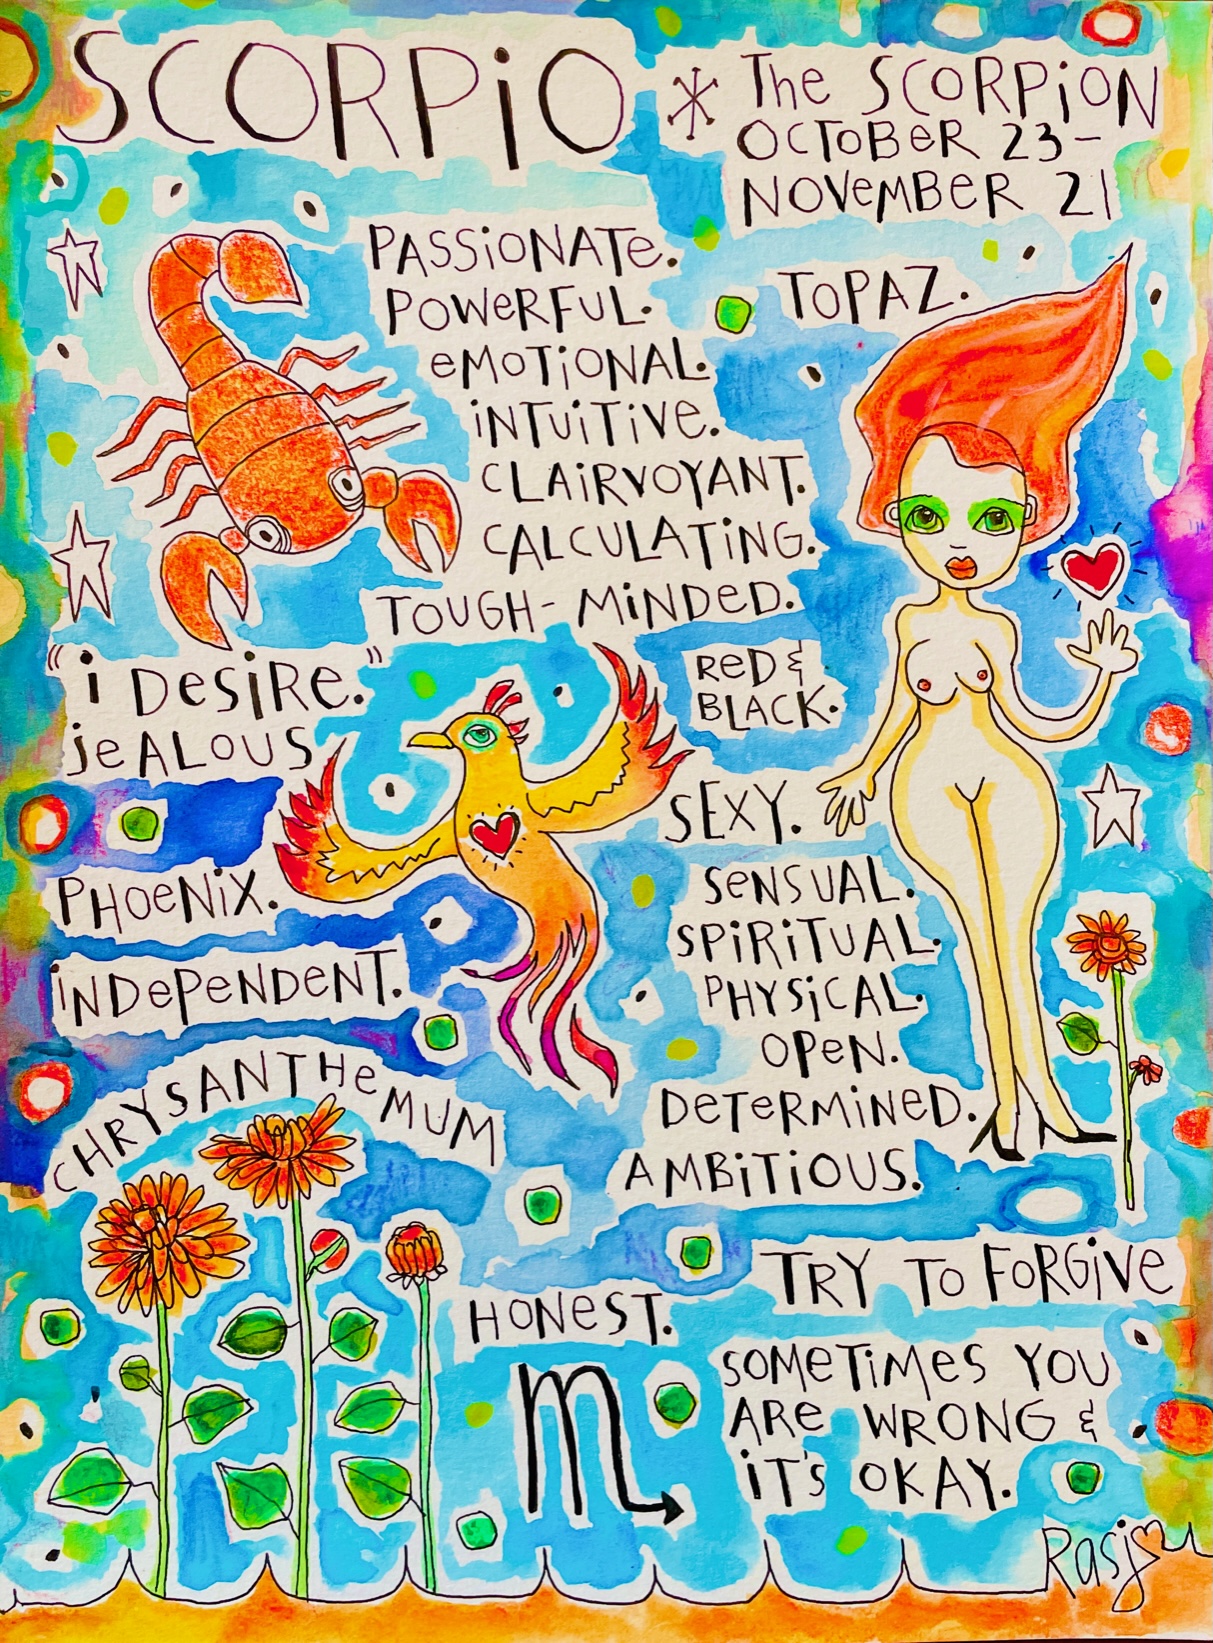 SCORPiO
* The SCORPiON
OCTOBeR 23-
NOVeMBeR 21
PASSiONATe.
POWeRFUL.
eMOTiONAL.
iNTUiTiVe.
CLAiRVOYANT.
CALCULATiNG.
TOUGH-MiNDeD.
TOPAZ.
"i DeSiRe."
jeALOUS
ReD &
BLACK.
SEXY.
PHOeNiX.
SeNSUAL.
SPiRiTUAL.
PHYSiCAL.
OPeN.
DeTeRMiNeD.
AMBiTiOUS.
iNDePeNDeNT.
CHRYSANTHeMUM
HONeST.
TRY TO FORGiVe
SOMeTiMeS YOU
ARe WRONG &
iT'S OKAY.